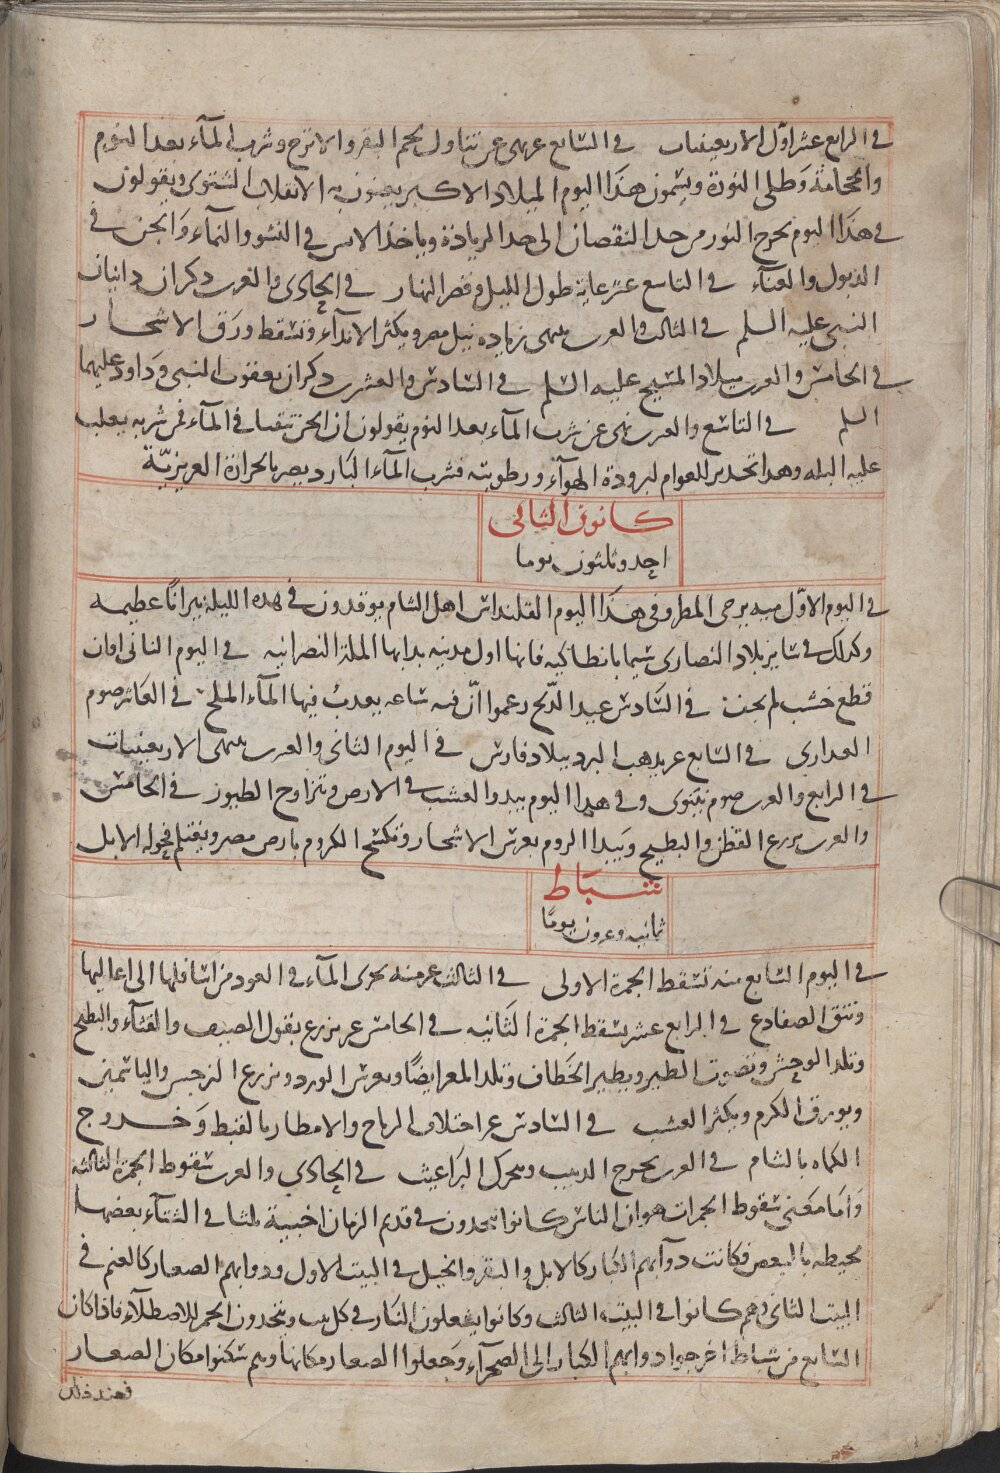 في الرابع عشر اول الاربعينيات في السابع عر نهى عن تناول لحم البقر والاترج وشرب المآء بعد النوم
والحجامة وطلى النورة ويسمون هذا اليوم الميلاد الاكبر يعنون به الانقلاب الشتوى ويقولون
في هذا اليوم يخرج النور من حد النقصان الى حد الزيادة وياخذ الانس في النشو والنمآء والجن في
الذبول والفنآء في التاسع عشر غاية طول الليل وقصر النهار في الحادى والعرں ذكران دانيال
النبى عليه السلم في الثالث والعرں ينتهى زياده نيل مصر ويكثر الاندآء وتسقط ورق الاشجار
في الخامس والعرں ميلاد المسيح عليه السلم في السادس والعشرں ذكران يعقوب النبى وداود عليهما
السلم في التاسع والعرں نهى عن شرب المآء بعد النوم يقولون ان الجن تتقيا في المآء فمن شربه يغلب
عليه البله وهذا تحذير للعوام لبرودة الهوآء ورطوبته فشرب المآء البارد يضر بالحرارة الغريزيّة
كانون الثانى
احد وثلثون يوما
في اليوم الاوّل ميه يرجى المطر وفى هذا اليوم القلنداس اهل الشام يوقدون في هذه الليلة نيرانًا عظيمه
وكذلك في سائر بلاد النصارى سيما بانطاكيه فانها اول مدينه بدا بها الملة النصرانيه في اليوم الثانى اوان
قطع خشب لم يجف في السادس عيد الدّنح زعموا انّ فيه ساعه يعذبُ فيها المآء الملح في العاشر صوم
العذارى في السابع عر يذهب البرد ببلاد فارس في اليوم الثانى والعرں ينتهى الاربعينيات
في الرابع والعرں صوم نينوى وفى هذا اليوم يبدو العشب في الارض وتتزاوج الطيور في الخامس
والعرں يزرع القطن والبطيخ ويبدا الروم بغرس الاشجار وتكسح الكروم بارض مصر ويغتلم فحوله الابل
شباط
ثمانيه وعرون يومًا
في اليوم السابع منه تسقط الجمرة الاولى في الثالث عر منه يجرى المآء في العود من اسافلها الى اعاليها
وتنق الضفادع في الرابع عشر يسقط الجمرة الثانيه في الخامس عر يزرع بقول الصيف والقثآء والبطيخ
وتلد الوحش وتصوت الطير ويطير الخطاف وتلد المعز ايضًا ويغرس الورد ويزرع النرجس والياسمين
ويورق الكرم ويكثر العشب في السادس عر اختلاف الرياح والامطار بالقبط وخروج
الكماه بالشام في العرں يخرج الدبيب ويتحرك البراغيث في الحادى والعرں سقوط الجمرة الثالثه
واما معنى سقوط الجمرات هو ان الناس كانوا يتخذون في قديم الزمان اخبية ثلثا في الشتآء بعضها
محيطه بالبعض فكانت دوآبهم الكبار كالابل والبقر والخيل في البيت الاول ودوابهم الصغار كالغنم في
البيت الثانى وهم كانوا في البيت الثالث وكانوا يشعلون النار في كل بيت ويتخذون الجمر للاصطلآء فاذا كان
السابع من شباط اخرجوا دوابهم الكبار الى الصحرآء وجعلوا الصغار مكانها وهم سكنوا مكان الصغار
فعند ذلك